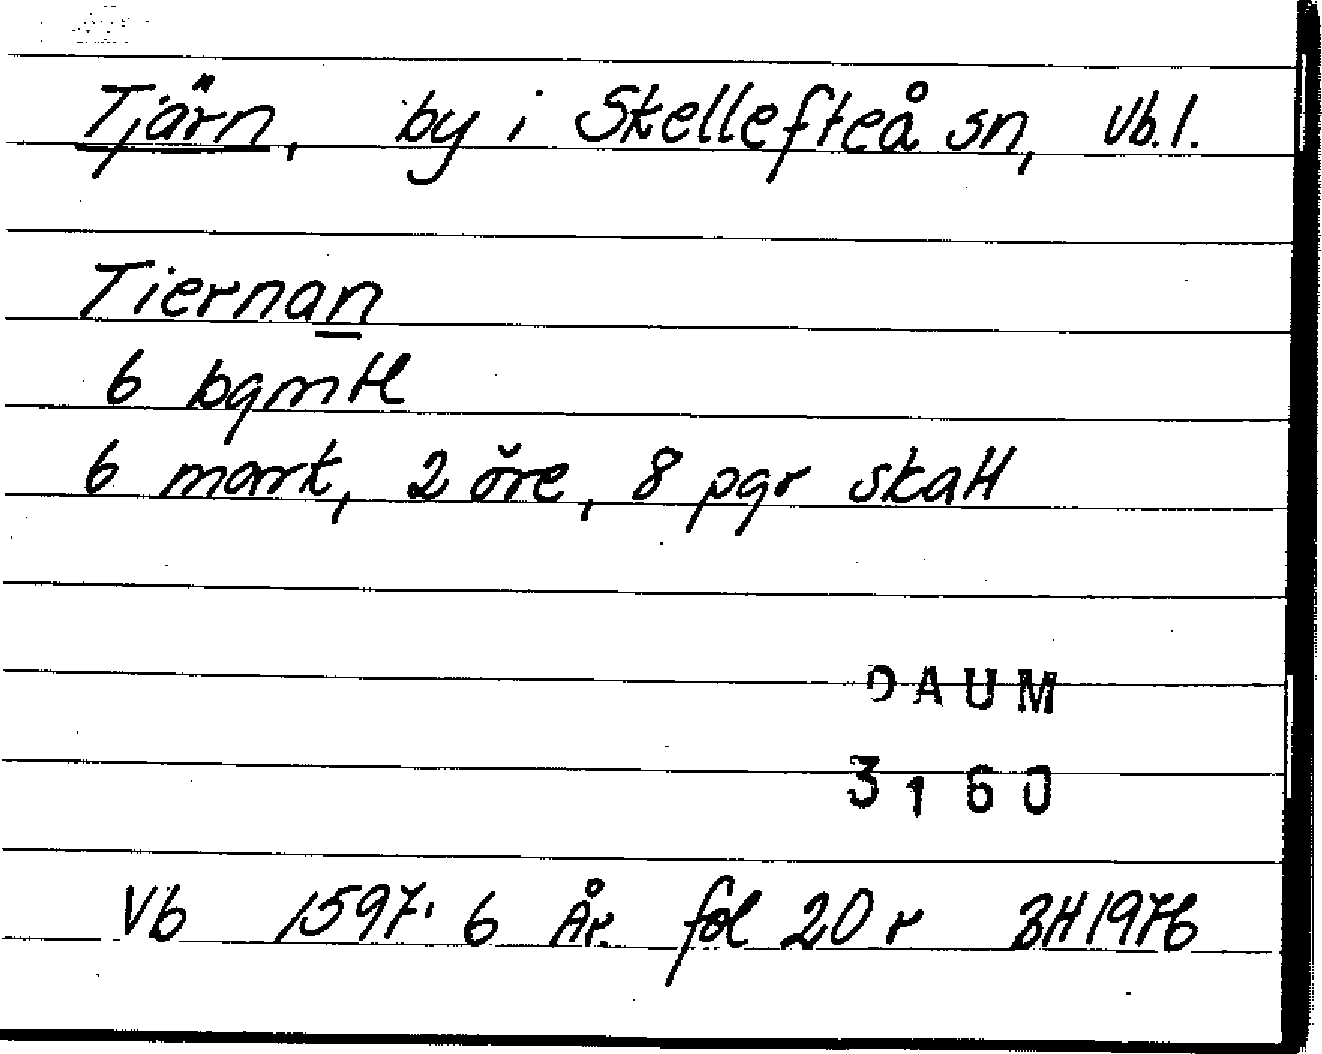 Tjärn, by i Skellefteå sn, Vb.l.
Tiernan
6 bgmtl
6 mark, 2 öre, 8 pgr skatt
DAUM
3160
Vb 1597:6 År. fol 20 r BH 1976